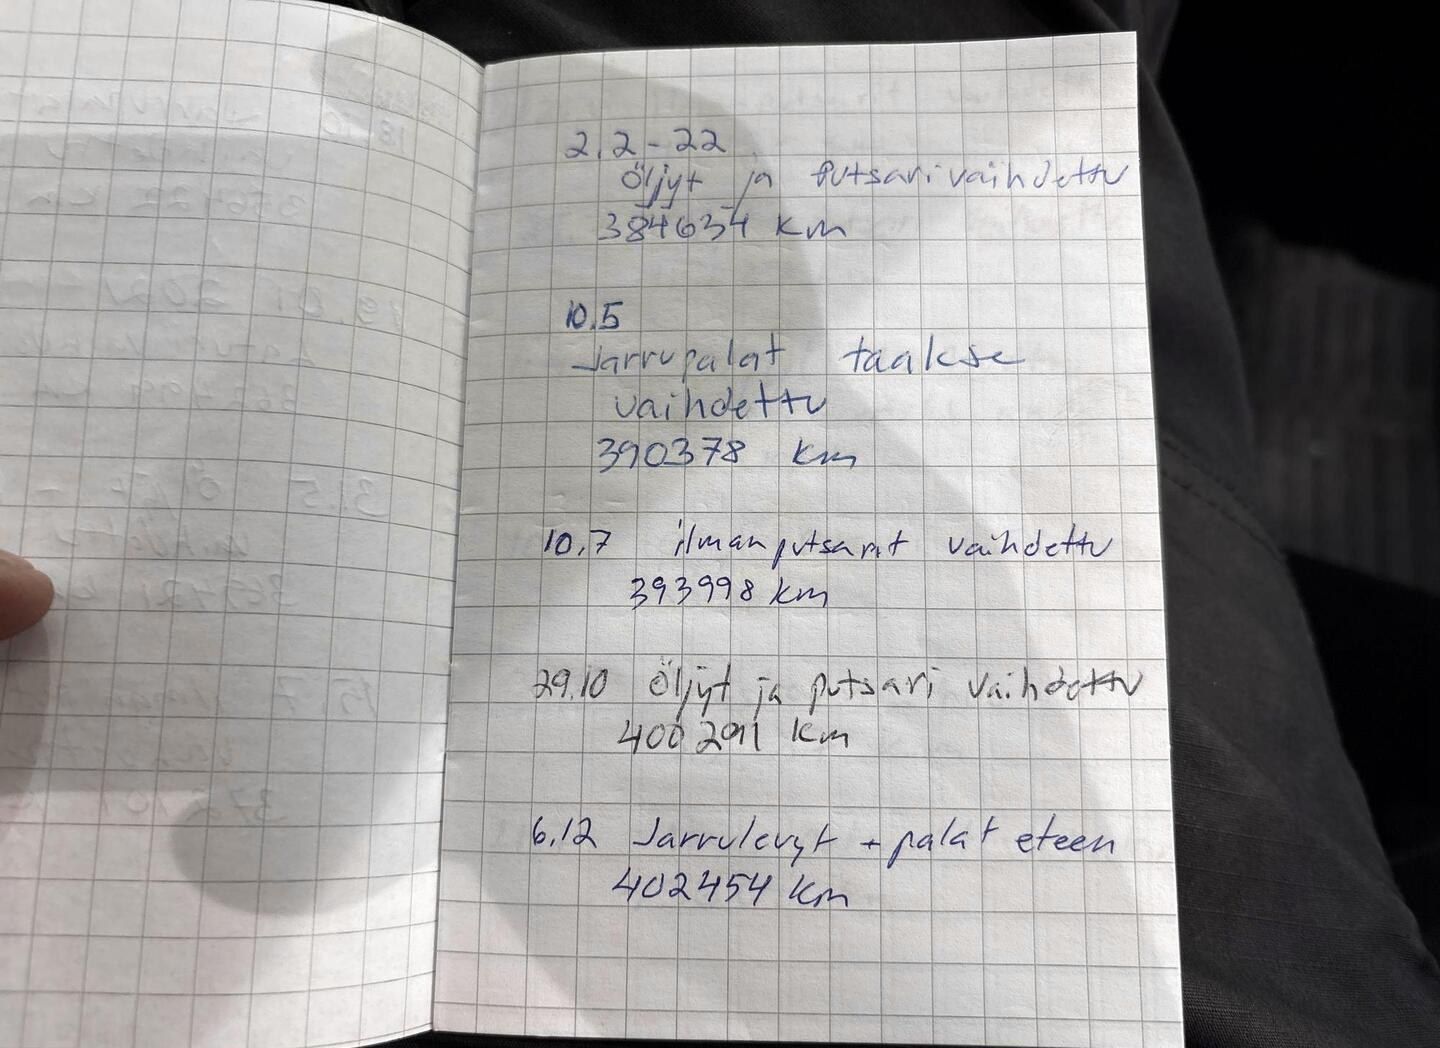 2.2-22
Öljyt ja putsari vaihdettu
384634 km
10.5
Jarrupalat taakse
vaihdettu
390378 km
10.7 ilmanputsarit vaihdettu
393998 km
29.10 Öljyt ja putsari vaihdettu
400291 km
6.12 Jarrulevyt + palat eteen
402454 km